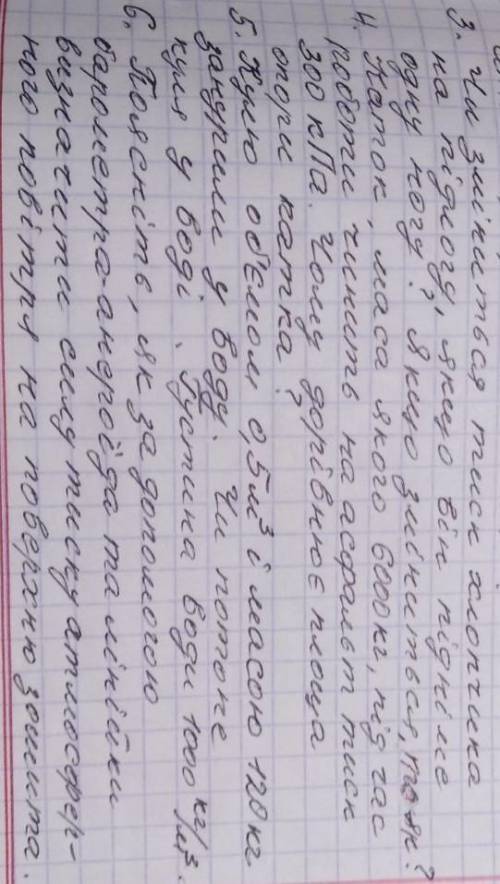 3. Чи зміниться тиск хлопчика
на підлогу, якщо він підніме
одну ногу? Якщо зміниться, то як?
4. Каток, маса якого 6000 кг, під час
роботи чинить на асфальт тиск
300 кПа. Чому дорівнює площа
опори катка?
5. Кулю об'ємом 0,5 м³ і масою 120 кг
занурили у воду. Чи потоне
куля у воді. Густина води 1000 кг/м³.
6. Поясніть, як за допомогою
барометра-анероїда та лінійки
визначити силу тиску атмосфер-
ного повітря на поверхню зошита.